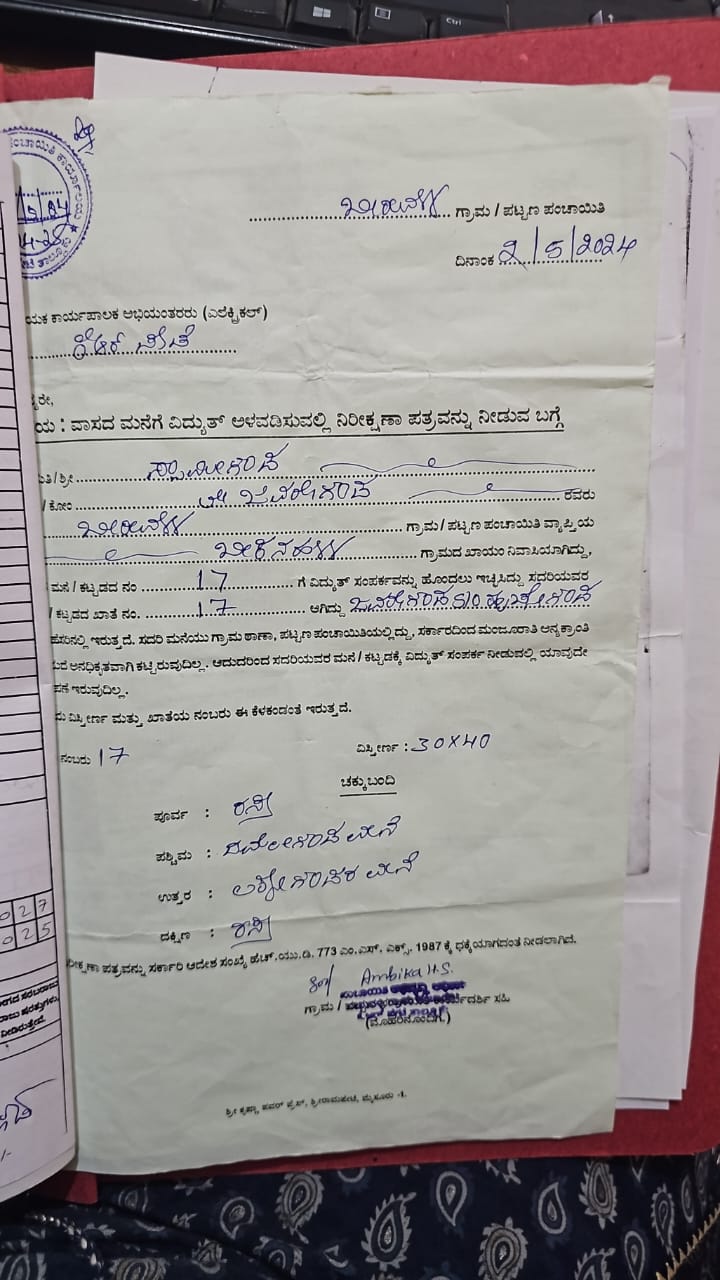 ಬೀರುವಳ್ಳಿ ಗ್ರಾಮ / ಪಟ್ಟಣ ಪಂಚಾಯಿತಿ
ದಿನಾಂಕ 2/5/2024
ಯಕ ಕಾರ್ಯಪಾಲಕ ಅಭಿಯಂತರರು (ಎಲೆಕ್ಟ್ರಿಕಲ್)
ಪೇಟೆ
ರೇ,
ಯ : ವಾಸದ ಮನೆಗೆ ವಿದ್ಯುತ್ ಅಳವಡಿಸುವಲ್ಲಿ ನಿರೀಕ್ಷಣಾ ಪತ್ರವನ್ನು ನೀಡುವ ಬಗ್ಗೆ
ಮತಿ/ಶ್ರೀ ಸ್ವಾಮೀಗೌಡ
/ ಕೋಂ ಲೇ ಜವರೇಗೌಡ ರವರು
ಬೀರುವಳ್ಳಿ ಗ್ರಾಮ / ಪಟ್ಟಣ ಪಂಚಾಯಿತಿ ವ್ಯಾಪ್ತಿಯ
ಗ್ರಾಮದ ಖಾಯಂ ನಿವಾಸಿಯಾಗಿದ್ದು,
ಮನೆ / ಕಟ್ಟಡದ ನಂ 17 ಗೆ ವಿದ್ಯುತ್ ಸಂಪರ್ಕವನ್ನು ಹೊಂದಲು ಇಚ್ಛಿಸಿದ್ದು ಸದರಿಯವರ
/ ಕಟ್ಟಡದ ಖಾತೆ ನಂ. 17 ಆಗಿದ್ದು ಜವರೇಗೌಡ S/O ಹುಚ್ಚೇಗೌಡ
ಹೆಸರಿನಲ್ಲಿ ಇರುತ್ತದೆ. ಸದರಿ ಮನೆಯು ಗ್ರಾಮ ಠಾಣಾ, ಪಟ್ಟಣ ಪಂಚಾಯಿತಿಯಲ್ಲಿದ್ದು, ಸರ್ಕಾರದಿಂದ ಮಂಜೂರಾತಿ ಅನ್ಯಕ್ರಾಂತಿ
ಅನಧಿಕೃತವಾಗಿ ಕಟ್ಟಿರುವುದಿಲ್ಲ. ಆದುದರಿಂದ ಸದರಿಯವರ ಮನೆ / ಕಟ್ಟಡಕ್ಕೆ ವಿದ್ಯುತ್ ಸಂಪರ್ಕ ನೀಡುವಲ್ಲಿ ಯಾವುದೇ
ಪಣೆ ಇರುವುದಿಲ್ಲ.
ವಿಸ್ತೀರ್ಣ ಮತ್ತು ಖಾತೆಯ ನಂಬರು ಈ ಕೆಳಕಂಡಂತೆ ಇರುತ್ತದೆ.
ನಂಬರು 17 ವಿಸ್ತೀರ್ಣ : 30X40
ಚಕ್ಕುಬಂದಿ
ಪೂರ್ವ : ರಸ್ತೆ
ಪಶ್ಚಿಮ : ಮನೆ
ಉತ್ತರ : ಮನೆ
ದಕ್ಷಿಣ : ರಸ್ತೆ
ರೀಕ್ಷಣಾ ಪತ್ರವನ್ನು ಸರ್ಕಾರಿ ಆದೇಶ ಸಂಖ್ಯೆ ಹೆಚ್.ಯು.ಡಿ. 773 ಎಂ.ಎಸ್. ಎಕ್ಸ್. 1987 ಕ್ಕೆ ಧಕ್ಕೆಯಾಗದಂತೆ ನೀಡಲಾಗಿದೆ.
Sd/ Ambika H.S.
ಗ್ರಾಮ / ಕಾರ್ಯದರ್ಶಿ ಸಹಿ
(ಮೊಹರಿನೊಂದಿಗೆ)
ಶ್ರೀ ಕೃಷ್ಣಾ ಪವರ್ ಪ್ರೆಸ್, ಶ್ರೀರಾಮಪೇಟೆ, ಮೈಸೂರು -1.